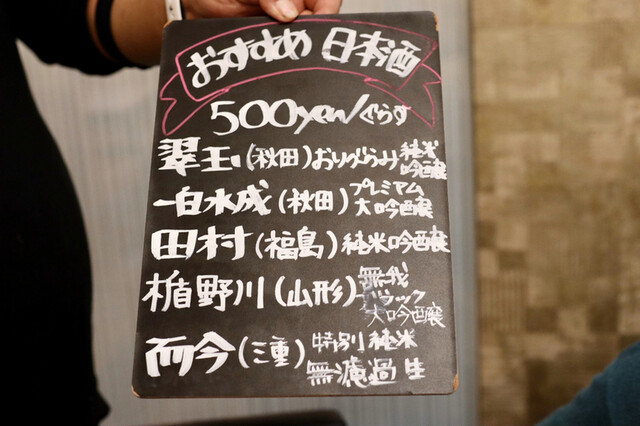 おすすめ 日本酒
500yen/ぐらす
翠玉(秋田)おりがらみ純米吟醸
一白水成(秋田)プレミアム大吟醸
田村(福島)純米吟醸
楯野川(山形)無我ブラック大吟醸
而今(三重)特別純米無濾過生